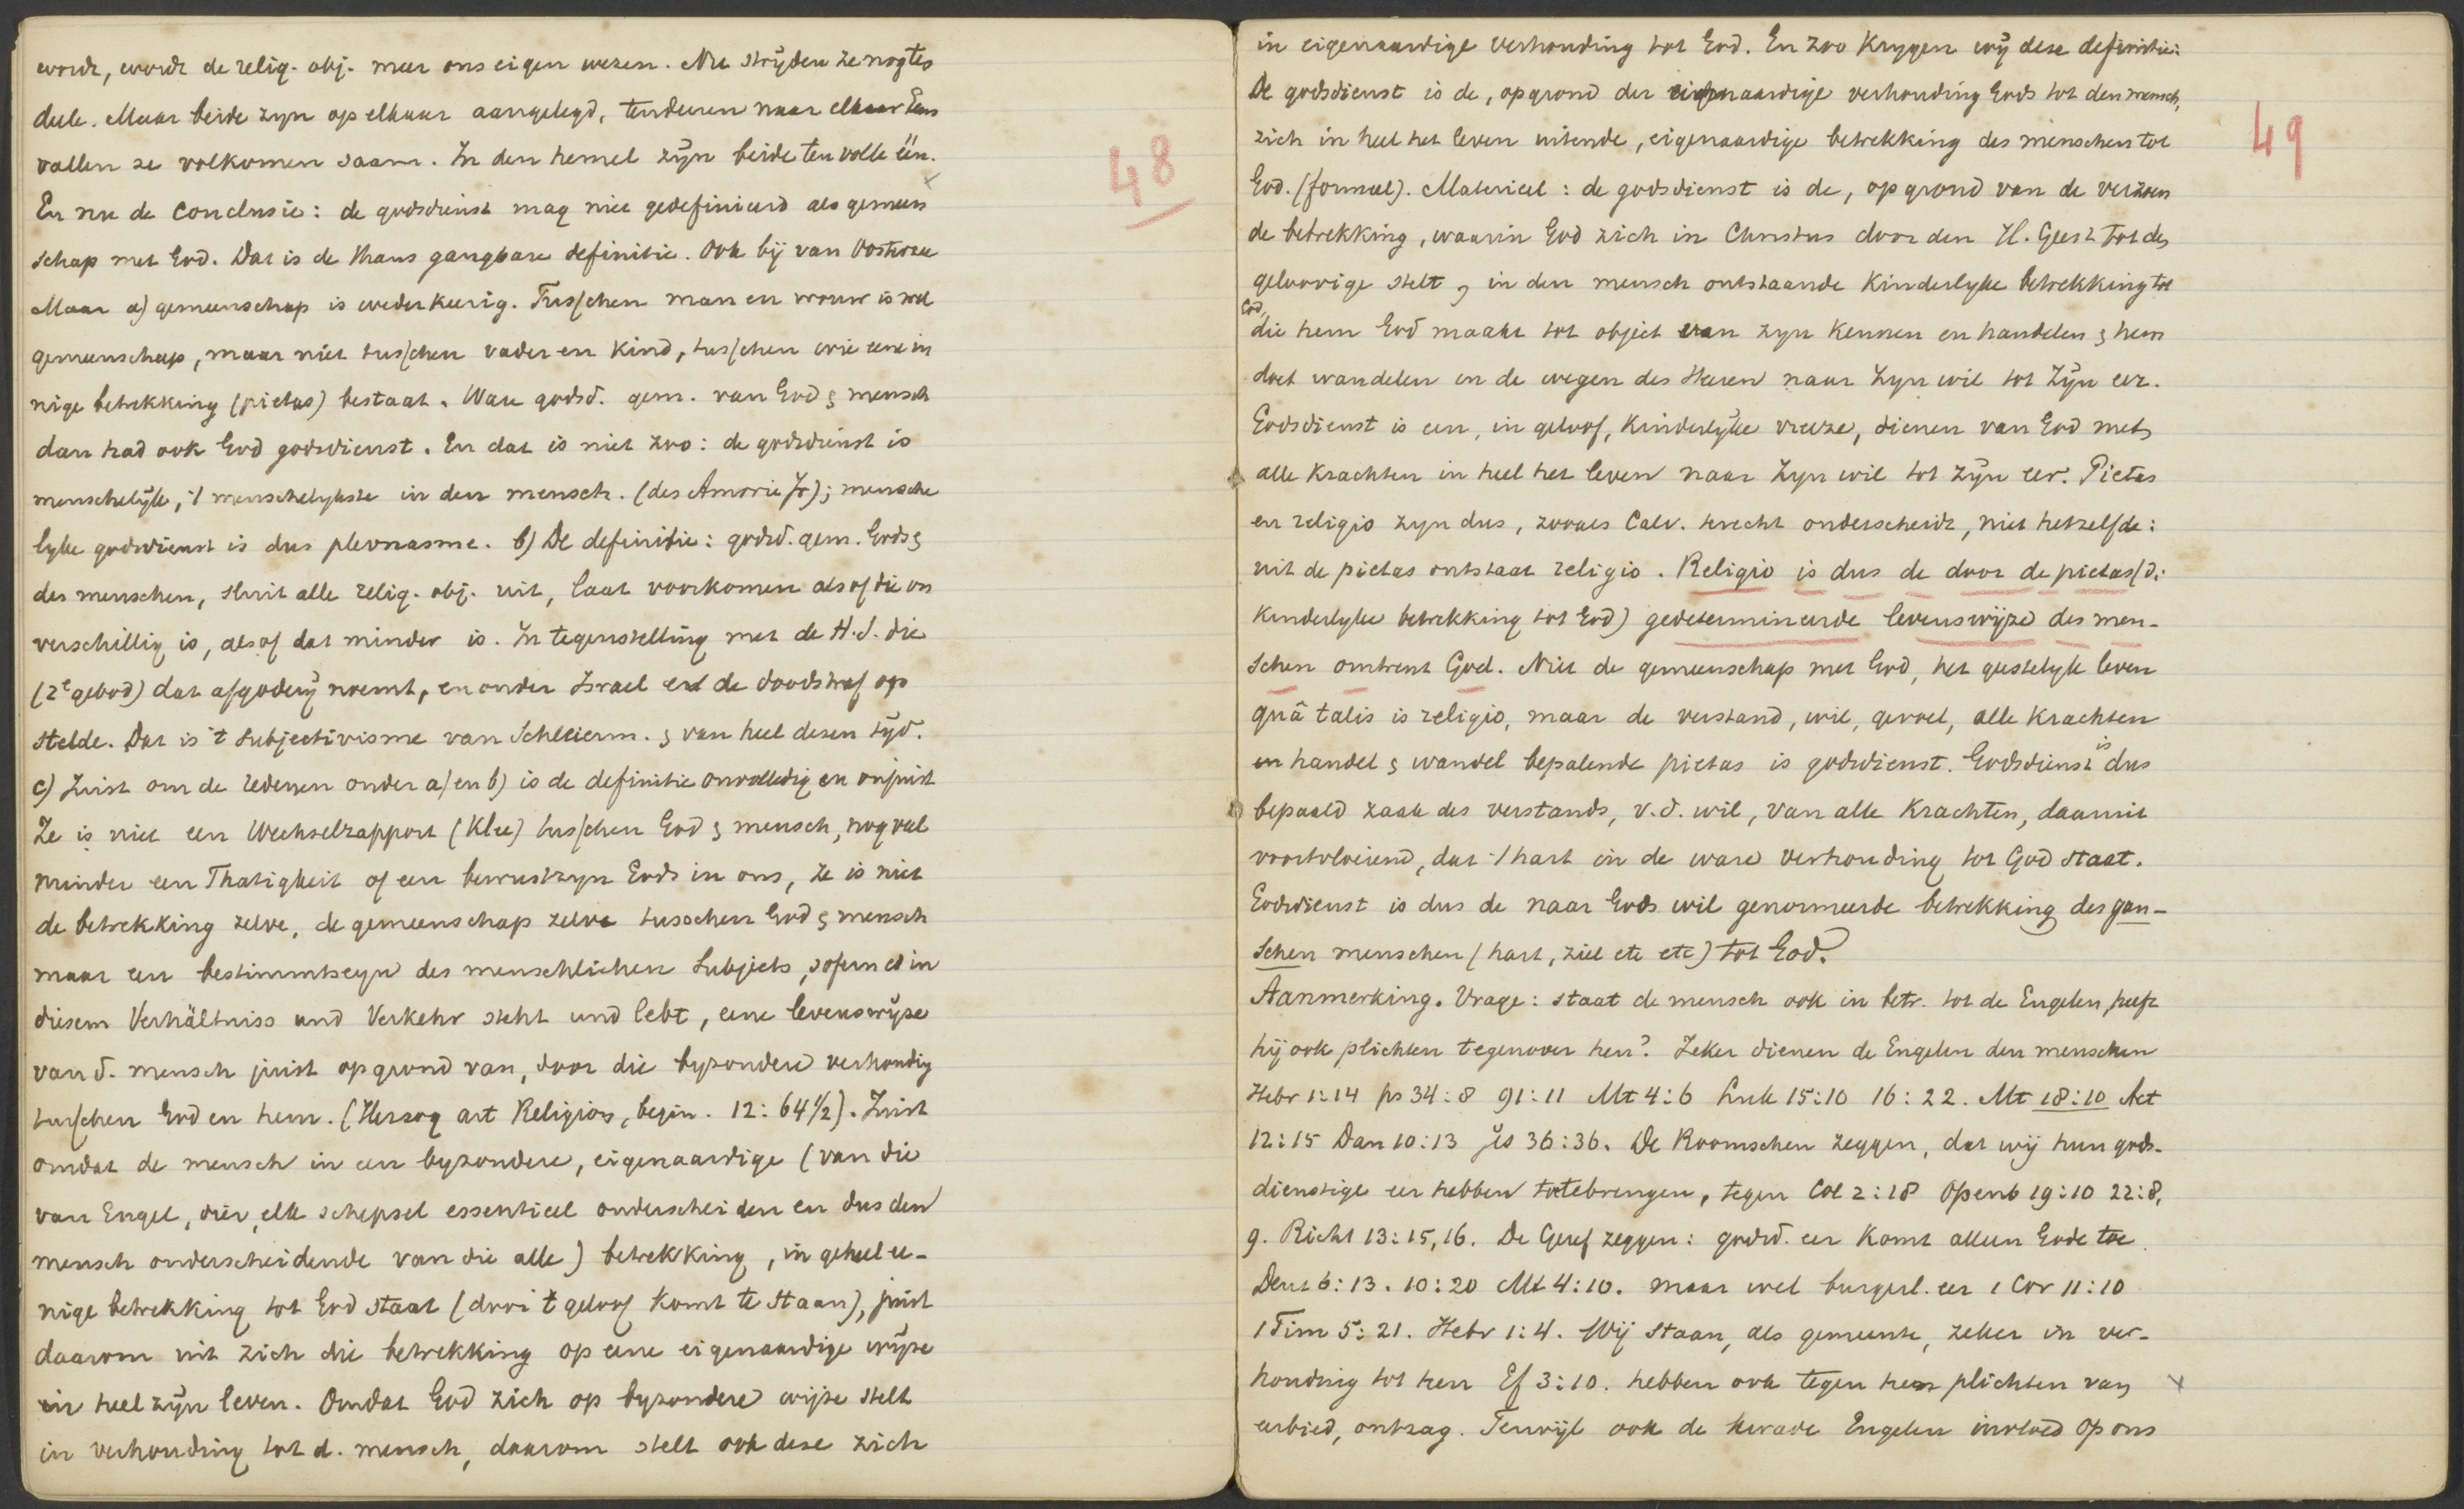 wordt, wordt de relig. obj. meer ons eigen wezen. Nu stryden ze nog ten
deele. Maar beide zyn op elkaar aangelegd, tenderen naar elkaar Eens
vallen ze volkomen saam. In den hemel zyn beide ten volle één.
En nu de conclusie: de godsdienst mag niet gedefinieerd als gemeen
schap met God. Dat is de thans gangbare definitie. Ook bij van Oosterzee
Maar a) gemeenschap is wederkeerig. Tusschen man en vrouw is wel
gemeenschap, maar niet tusschen vader en kind, tusschen wie eene in
nige betrekking (pietas) bestaat. Ware godsd. gem. van God & mensch
dan had ook God godsdienst. En dat is niet zoo: de godsdienst is
menschelijk, 't menschelykste in den mensch. (des Amorie ); mensche
lyke godsdienst is dus pleonasme. b) De definitie: godsd. gem. Gods &
des menschen, sluit alle relig. obj. uit, laat voorkomen alsof die on
verschillig is, alsof dat minder is. In tegenstelling met de H.S. die
(2e gebod) dat afgodery noemt, en onder Israel er de doodstraf op
stelde. Dat is 't subjectivisme van Schleierm. & van heel dezen tyd.
c) Juist om de redenen onder a) en b) is de definitie onvolledig en onjuist
Ze is niet een Wechselrapport (Klee) tusschen God & mensch, nog veel
minder een Thatigkeit of een bewustzyn Gods in ons, ze is niet
de betrekking zelve, de gemeenschap zelve tusschen God & mensch
maar een bestimmtseyn des menschlichen Subjects, sofern es in
diesem Verhältniss und Verkehr steht und lebt, eene levenswyze
van d. mensch juist op grond van, door die byzondere verhoudig
tusschen God en hem. (Herzog art Religion, begin. 12: 641/2). Juist
omdat de mensch in een byzondere, eigenaardige (van die
van Engel, dier, elk schepsel essentieel onderscheiden en dus den
mensch onderscheidende van die alle) betrekking, in geheel ee-
nige betrekking tot God staat (door 't geloof komt te staan), juist
daarom uit zich die betrekking op eene eigenaardige wyze
in heel zyn leven. Omdat God zich op byzondere wijze stelt
in verhouding tot d. mensch, daarom stelt ook deze zich
48
in eigenaardige verhouding tot God. En zoo krygen wy deze definitie:
De godsdienst is de, op grond der eigenaardige verhouding Gods tot den mensch,
zich in heel het leven uitende, eigenaardige betrekking des menschen tot
God. (formeel). Materieel: de godsdienst is de, op grond van de verzoen
de betrekking, waarin God zich in Christus door den H. Geest tot den
geloovige stelt, in den mensch ontstaande kinderlyke betrekking tot
God,
die hem God maakt tot object van zyn kennen en handelen & hem
doet wandelen in de wegen des Heeren naar Zyn wil tot Zyn eer.
Godsdienst is een, in geloof, kinderlyke vreeze, dienen van God met
alle krachten in heel het leven naar Zyn wil tot zyn eer. Pietas
en religio zyn dus, zooals Calv. terecht onderscheidt, niet hetzelfde:
uit de pietas ontstaat religio. Religio is dus de door de pietas (d.i
kinderlyke betrekking tot God) gedetermineerde levenswijze des men-
schen omtrent God. Niet de gemeenschap met God, het geestelyk leven
quâ talis is religio, maar de verstand, wil, gevoel, alle krachten
en handel & wandel bepalende pietas is godsdienst. Godsdienst is dus
bepaald zaak des verstands, v.d. wil, van alle krachten, daaruit
voortvloeiend, dat 't hart in de ware verhouding tot God staat.
Godsdienst is dus de naar Gods wil genormeerde betrekking des gan-
schen menschen (hart, ziel etc etc) tot God.
Aanmerking. Vrage: staat de mensch ook in betr. tot de Engelen, heeft
hij ook plichten tegenover hen? Zeker dienen de Engelen den menschen
Hebr 1:14 ps 34:8 91:11 Mt 4:6 Luk 15:10 16:22. Mt 18:10 Act
12:15 Dan 10:13 Jes 36:36. De Roomschen zeggen, dat wij hun gods-
dienstige eer hebben toetebrengen, tegen Col 2:18 Openb 19:10 22:8,
9. Richt 13:15,16. De Geref zeggen: godsd. eer komt alleen Gode toe.
Deut 6:13. 10:20 Mt 4:10. maar wel burgerl. eer 1 Cor 11:10
1 Tim 5:21. Hebr 1:4. Wij staan, als gemeente, zeker in ver-
houding tot hen Ef 3:10. hebben ook tegen hen plichten van
eerbied, ontzag. Terwijl ook de kwade Engelen invloed op ons
49